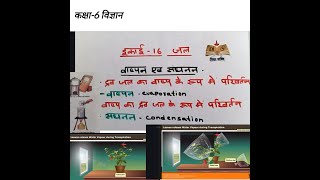 कक्षा-6 विज्ञान
इकाई-16 जल
वाष्पन एवं संघनन-
द्रव जल का वाष्प के रूप में परिवर्तन
- वाष्पन - evaporation
वाष्प का द्रव जल के रूप में परिवर्तन
संघनन - condensation